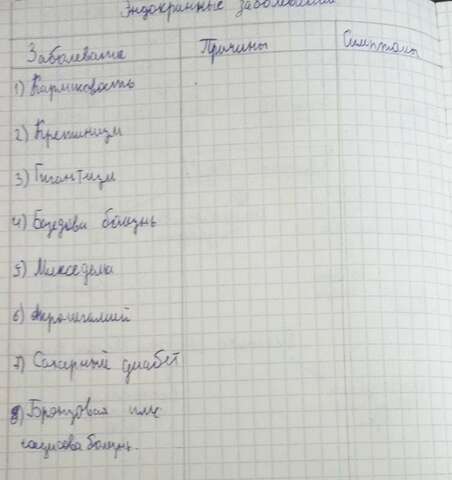 Эндокринные заболевания
Заболевание Причины Симптомы
1) Карликовость
2) Кретинизм
3) Гигантизм
4) Базедова болезнь
5) Микседема
6) Акромегалия
7) Сахарный диабет
8) Бронзовая или
болезнь.